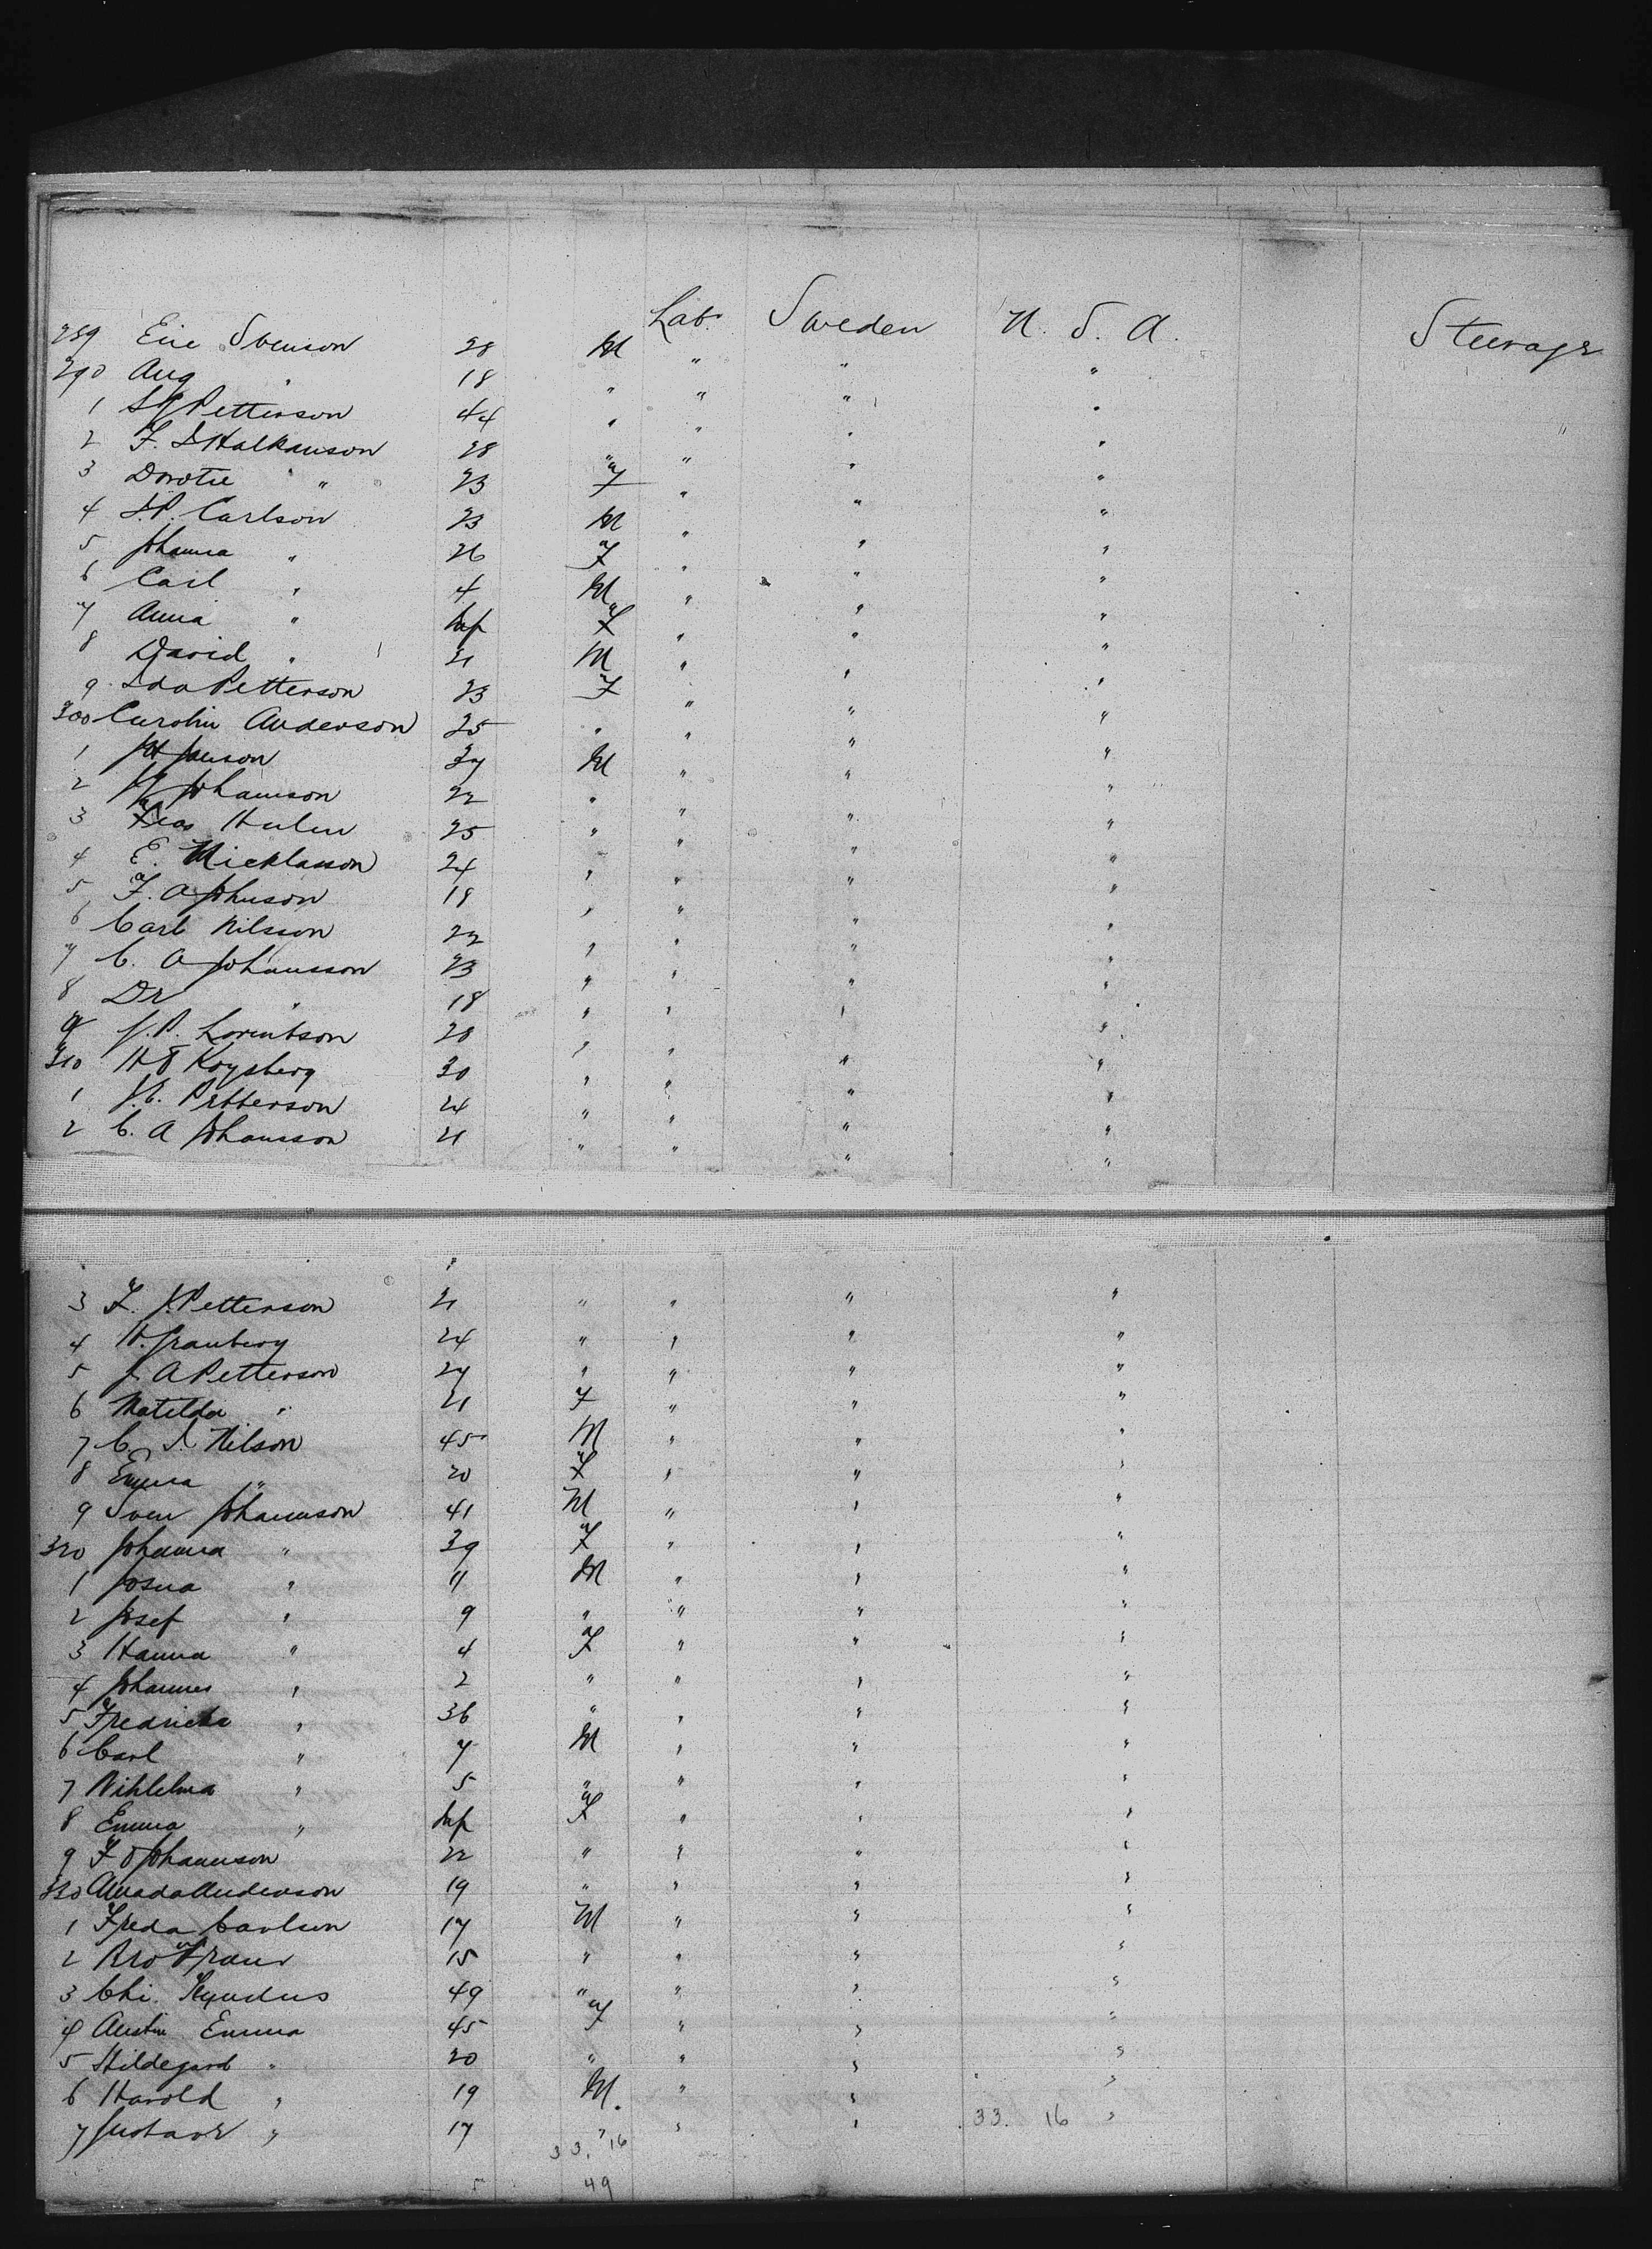 289 Eric Svenson 28 M Lab. Sweden U. S. A. Steerage
290 Aug " 18 " " " "
1 Petterson 44 " " " "
2 F. Halkanson 28 " " " "
3 Dorotie " 23 F " " "
4 Carlson 23 M " " "
5 Johanna " 26 F " " "
6 Carl " 4 M " " "
7 Anna " Inf F " " "
8 David " 21 M " " "
9 Ida Petterson 23 F " " "
300 Carolin Anderson 25 " " " "
1 Janson 27 M " " "
2 Johanson 22 " " " "
3 25 " " " "
4 E. Nicklasson 24 " " " "
5 F. A Johnson 18 " " " "
6 Carl Nilsson 22 " " " "
7 C. A Johansson 23 " " " "
8 " 18 " " " "
9 J. P. Lorentson 28 " " " "
310 30 " " " "
1 J. C. Petterson 24 " " " "
2 C. A Johansson 21 " " " "
3 F. J. Petterson 21 " " " "
4 H. Granberg 24 " " " "
5 J A Petterson 27 " " " "
6 Matilda " 21 F " " "
7 C. Nilson 45 M " " "
8 Emma " 20 F " " "
9 Sven Johannson 41 M " " "
320 Johanna " 39 F " " "
1 Josua " 11 M " " "
2 Josef " 9 " " " "
3 Hanna " 4 F " " "
4 Johannes " 2 " " " "
5 Fredricka " 36 " " " "
6 Carl " 7 M " " "
7 Wihlelma " 5 " " " "
8 Emma " Inf F " " "
9 F Johannson 22 " " " "
330 Anderson 19 " " " "
1 Freda Carlson 17 M " " "
2 15 " " " "
3 Chi. 49 " " " "
4 Austin Emma 45 F " " "
5 Hildegard " 20 " " " "
6 Harold " 19 M. " " "
7 Gustave " 17 " " " 33. 16 "
33. 16
5 49